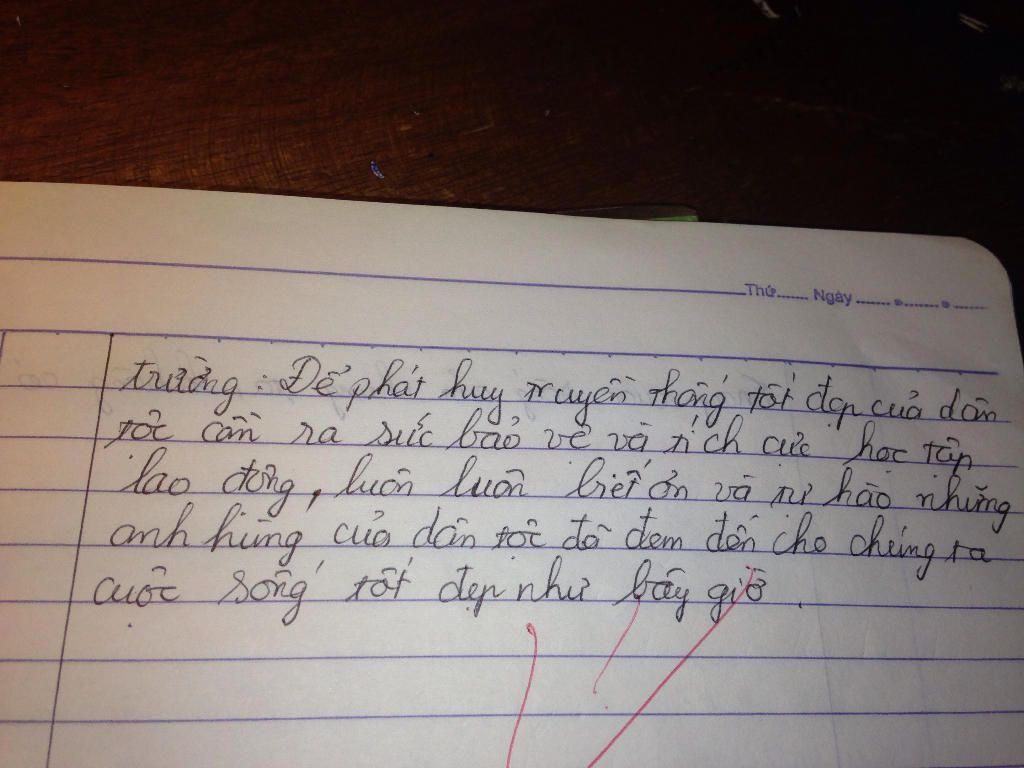 Thứ...... Ngày ....... • ....... • ......
trường: Để phát huy truyền thống tốt đẹp của dân
tộc cần ra sức bảo vệ và tích cực học tập
lao động, luôn luôn biết ơn và tự hào những
anh hùng của dân tộc đã đem đến cho chúng ta
cuộc sống tốt đẹp như bây giờ.